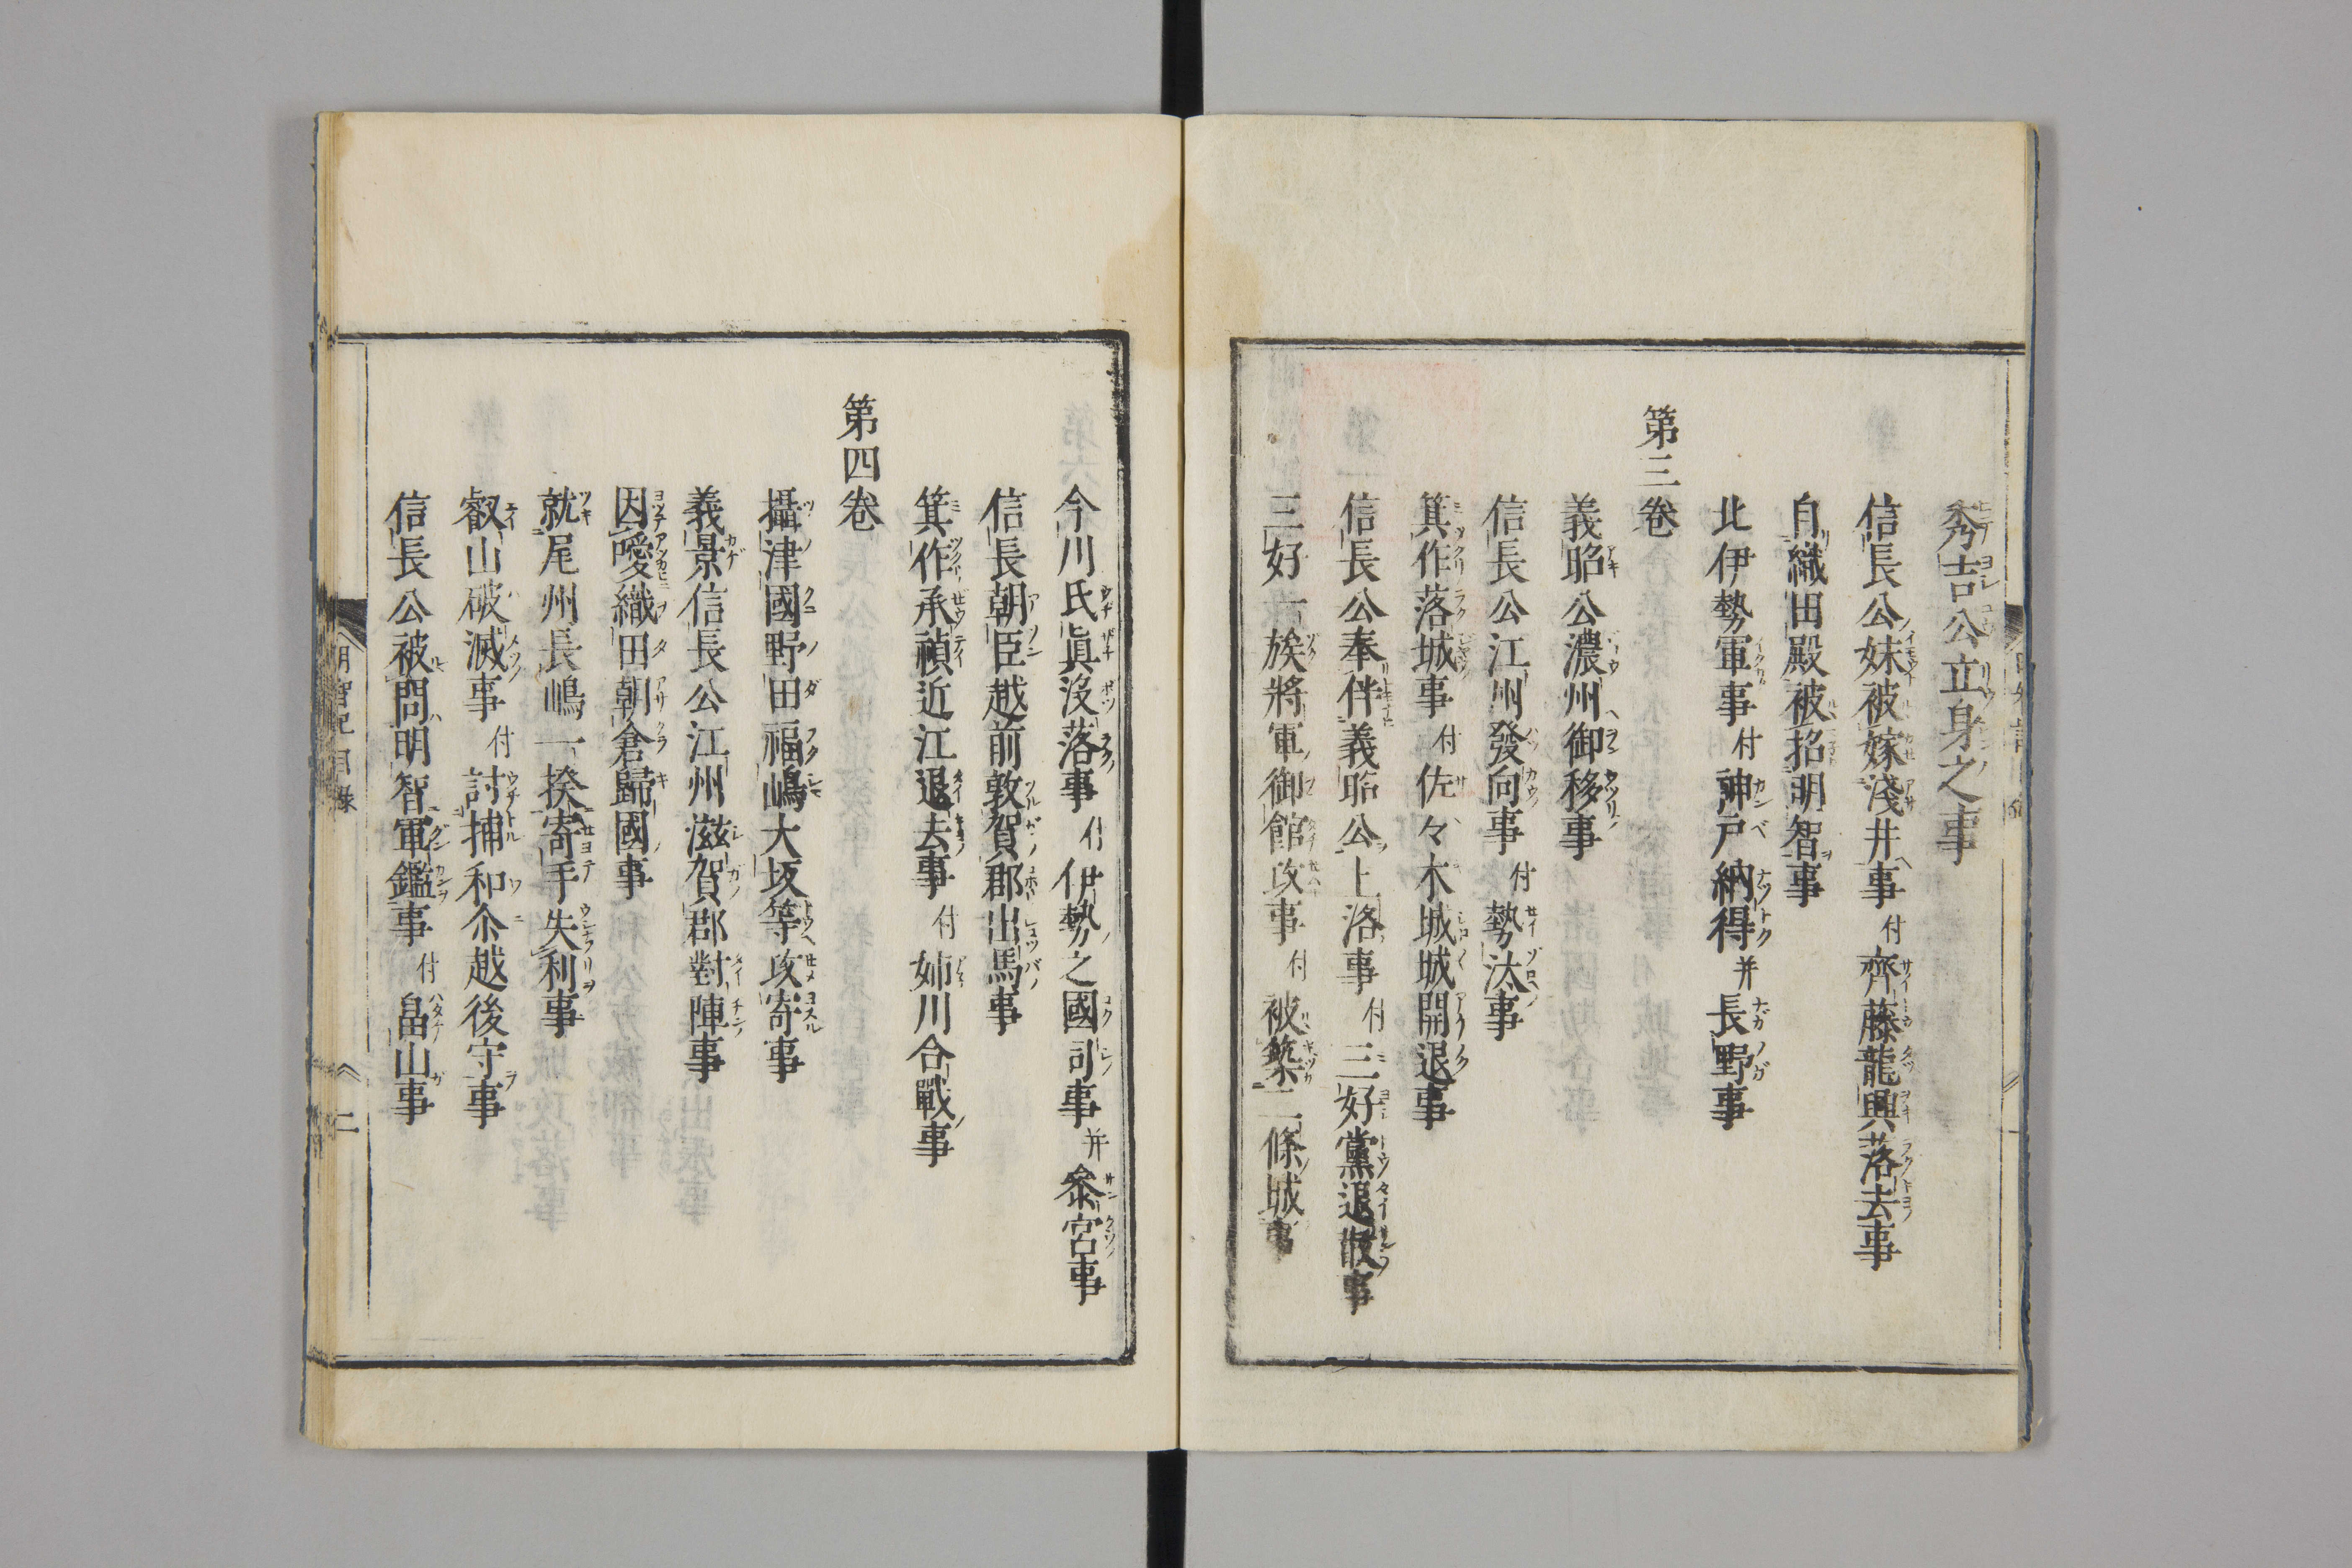 秀吉公立身之事
信長公妹被嫁淺井事付齊藤龍興落去事
自織田殿被招明智事
北伊勢軍事付神戸納得并長野事
第三卷
義昭公濃州御移事
信長公江州發向事付勢汰事
箕作落城事付佐々木城城開退事
信長公奉伴義昭公上洛事付三好黨退散事
三好一族將軍御館攻事付被築二條城事
今川氏眞沒落事付伊勢之國司事并參宮事
信長朝臣越前敦賀郡出馬事
箕作承禎近江退去事付姉川合戰事
第四卷
攝津國野田福嶋大坂等攻寄事
義景信長公江州滋賀郡對陣事
因噯織田朝倉歸國事
就尾州長嶋一揆寄手失利事
叡山破滅事付討捕和尒越後守事
信長公被問明智軍鑑事付畠山事
明智記目錄 二